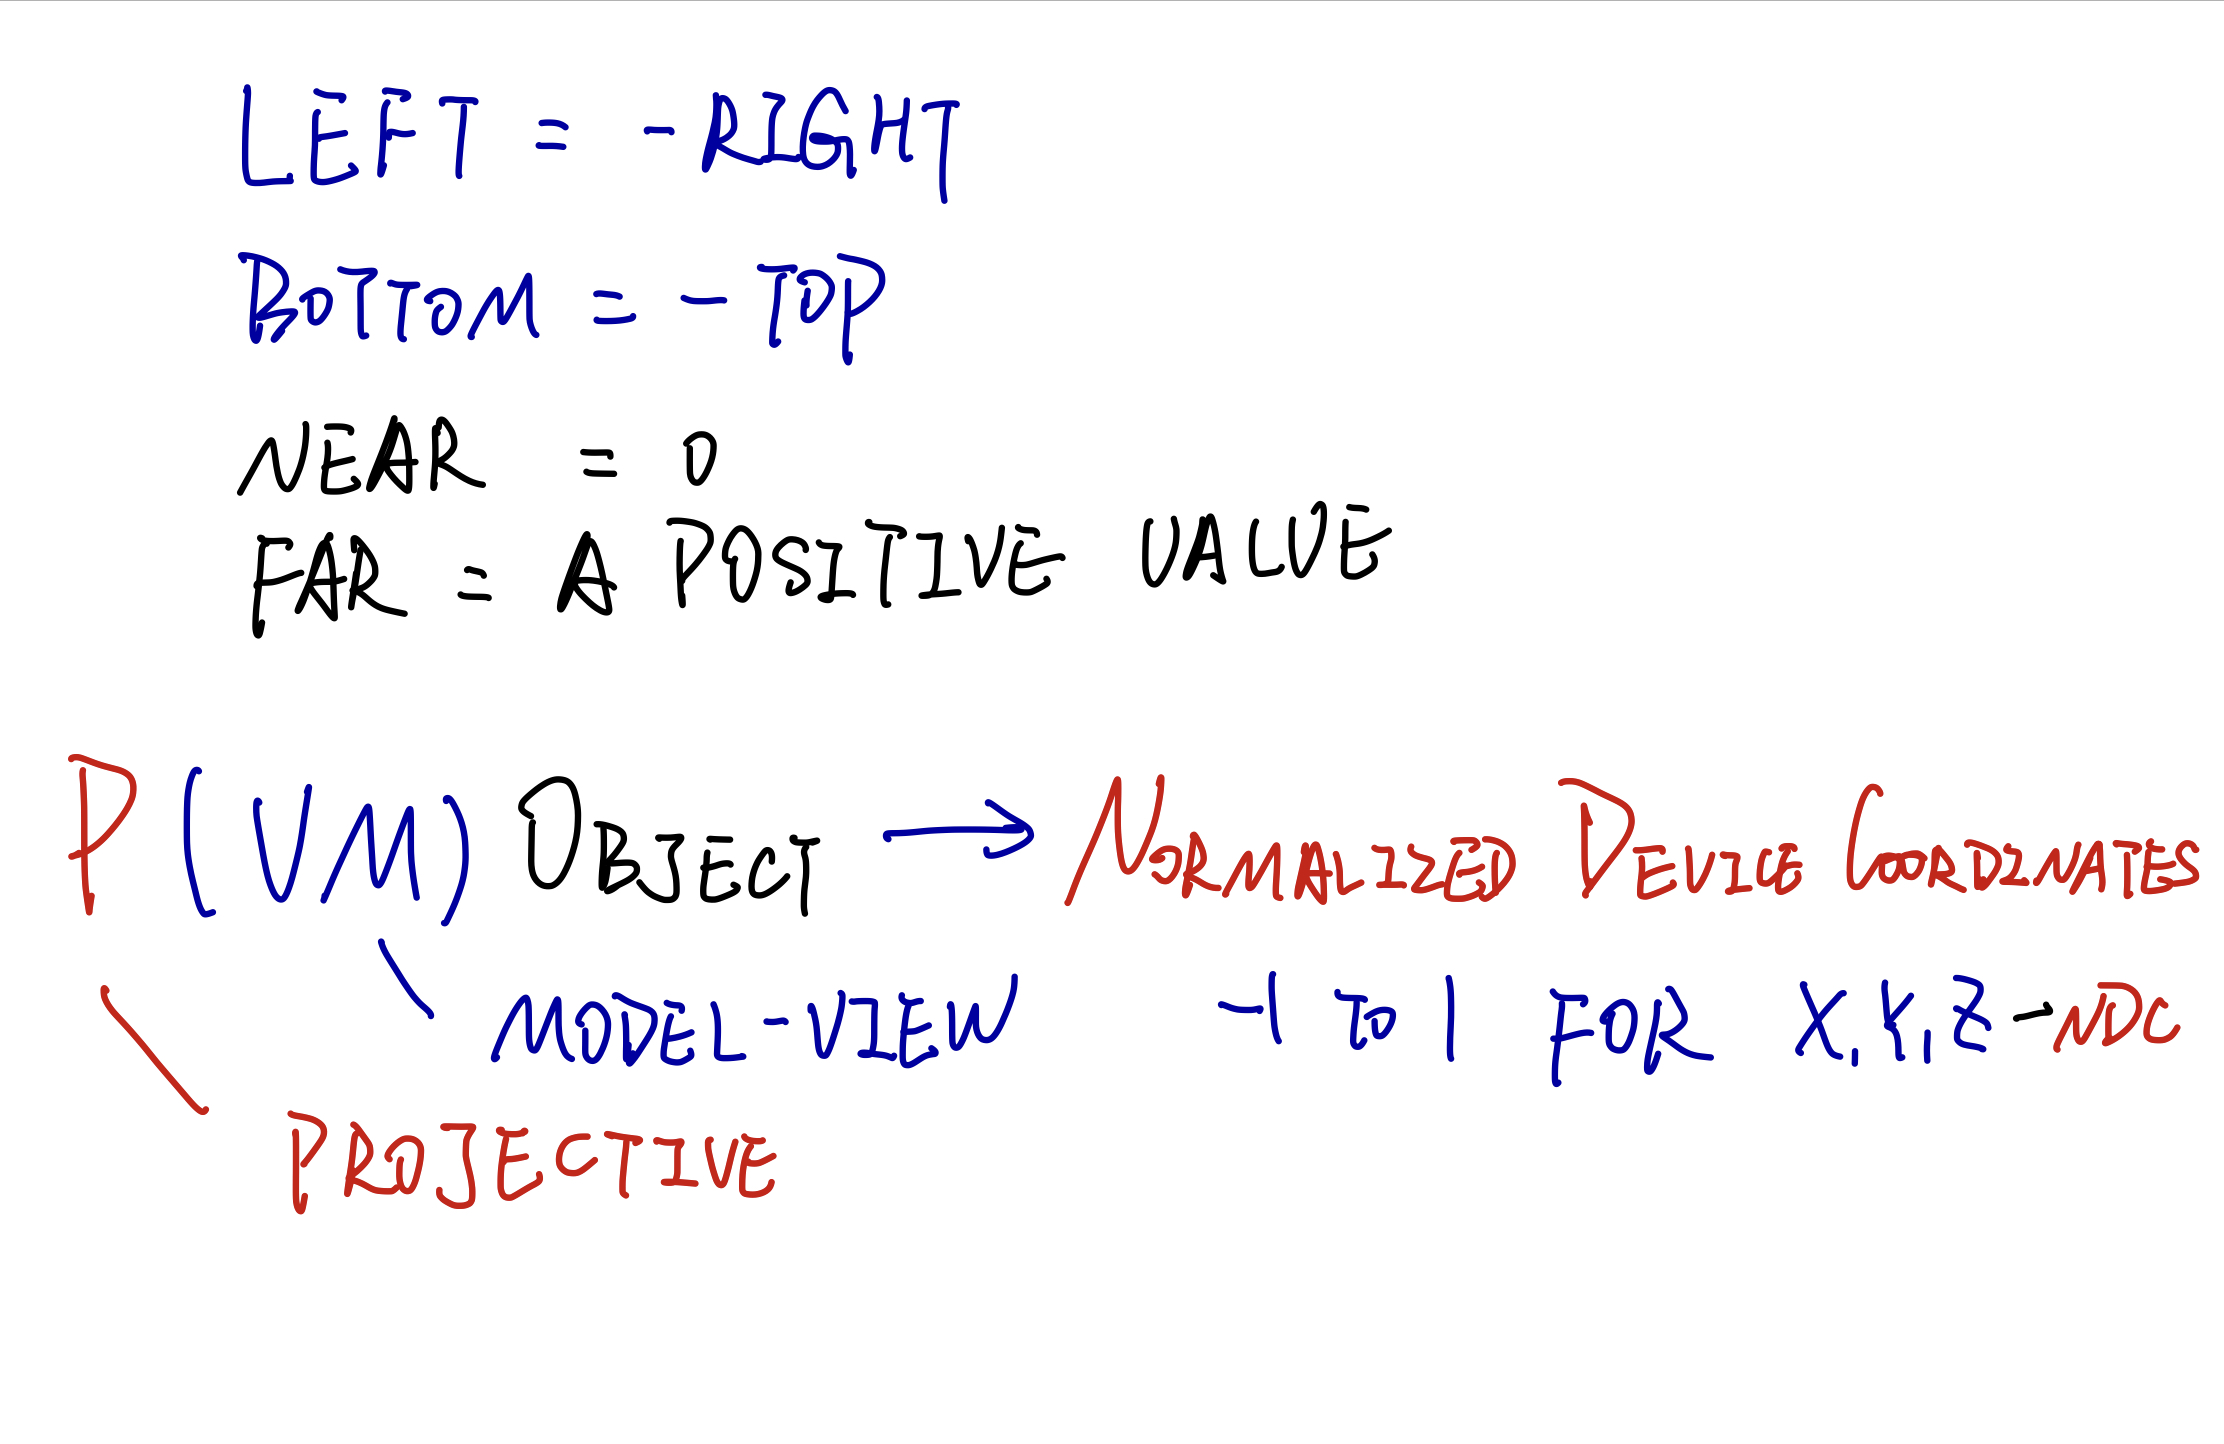 LEFT = -RIGHT
BOTTOM = - TOP
NEAR = 0
FAR = A POSITIVE VALUE
P (VM) OBJECT → NORMALIZED DEVICE COORDINATES
MODEL-VIEW -1 TO 1 FOR X, Y, Z - NDC
PROJECTIVE